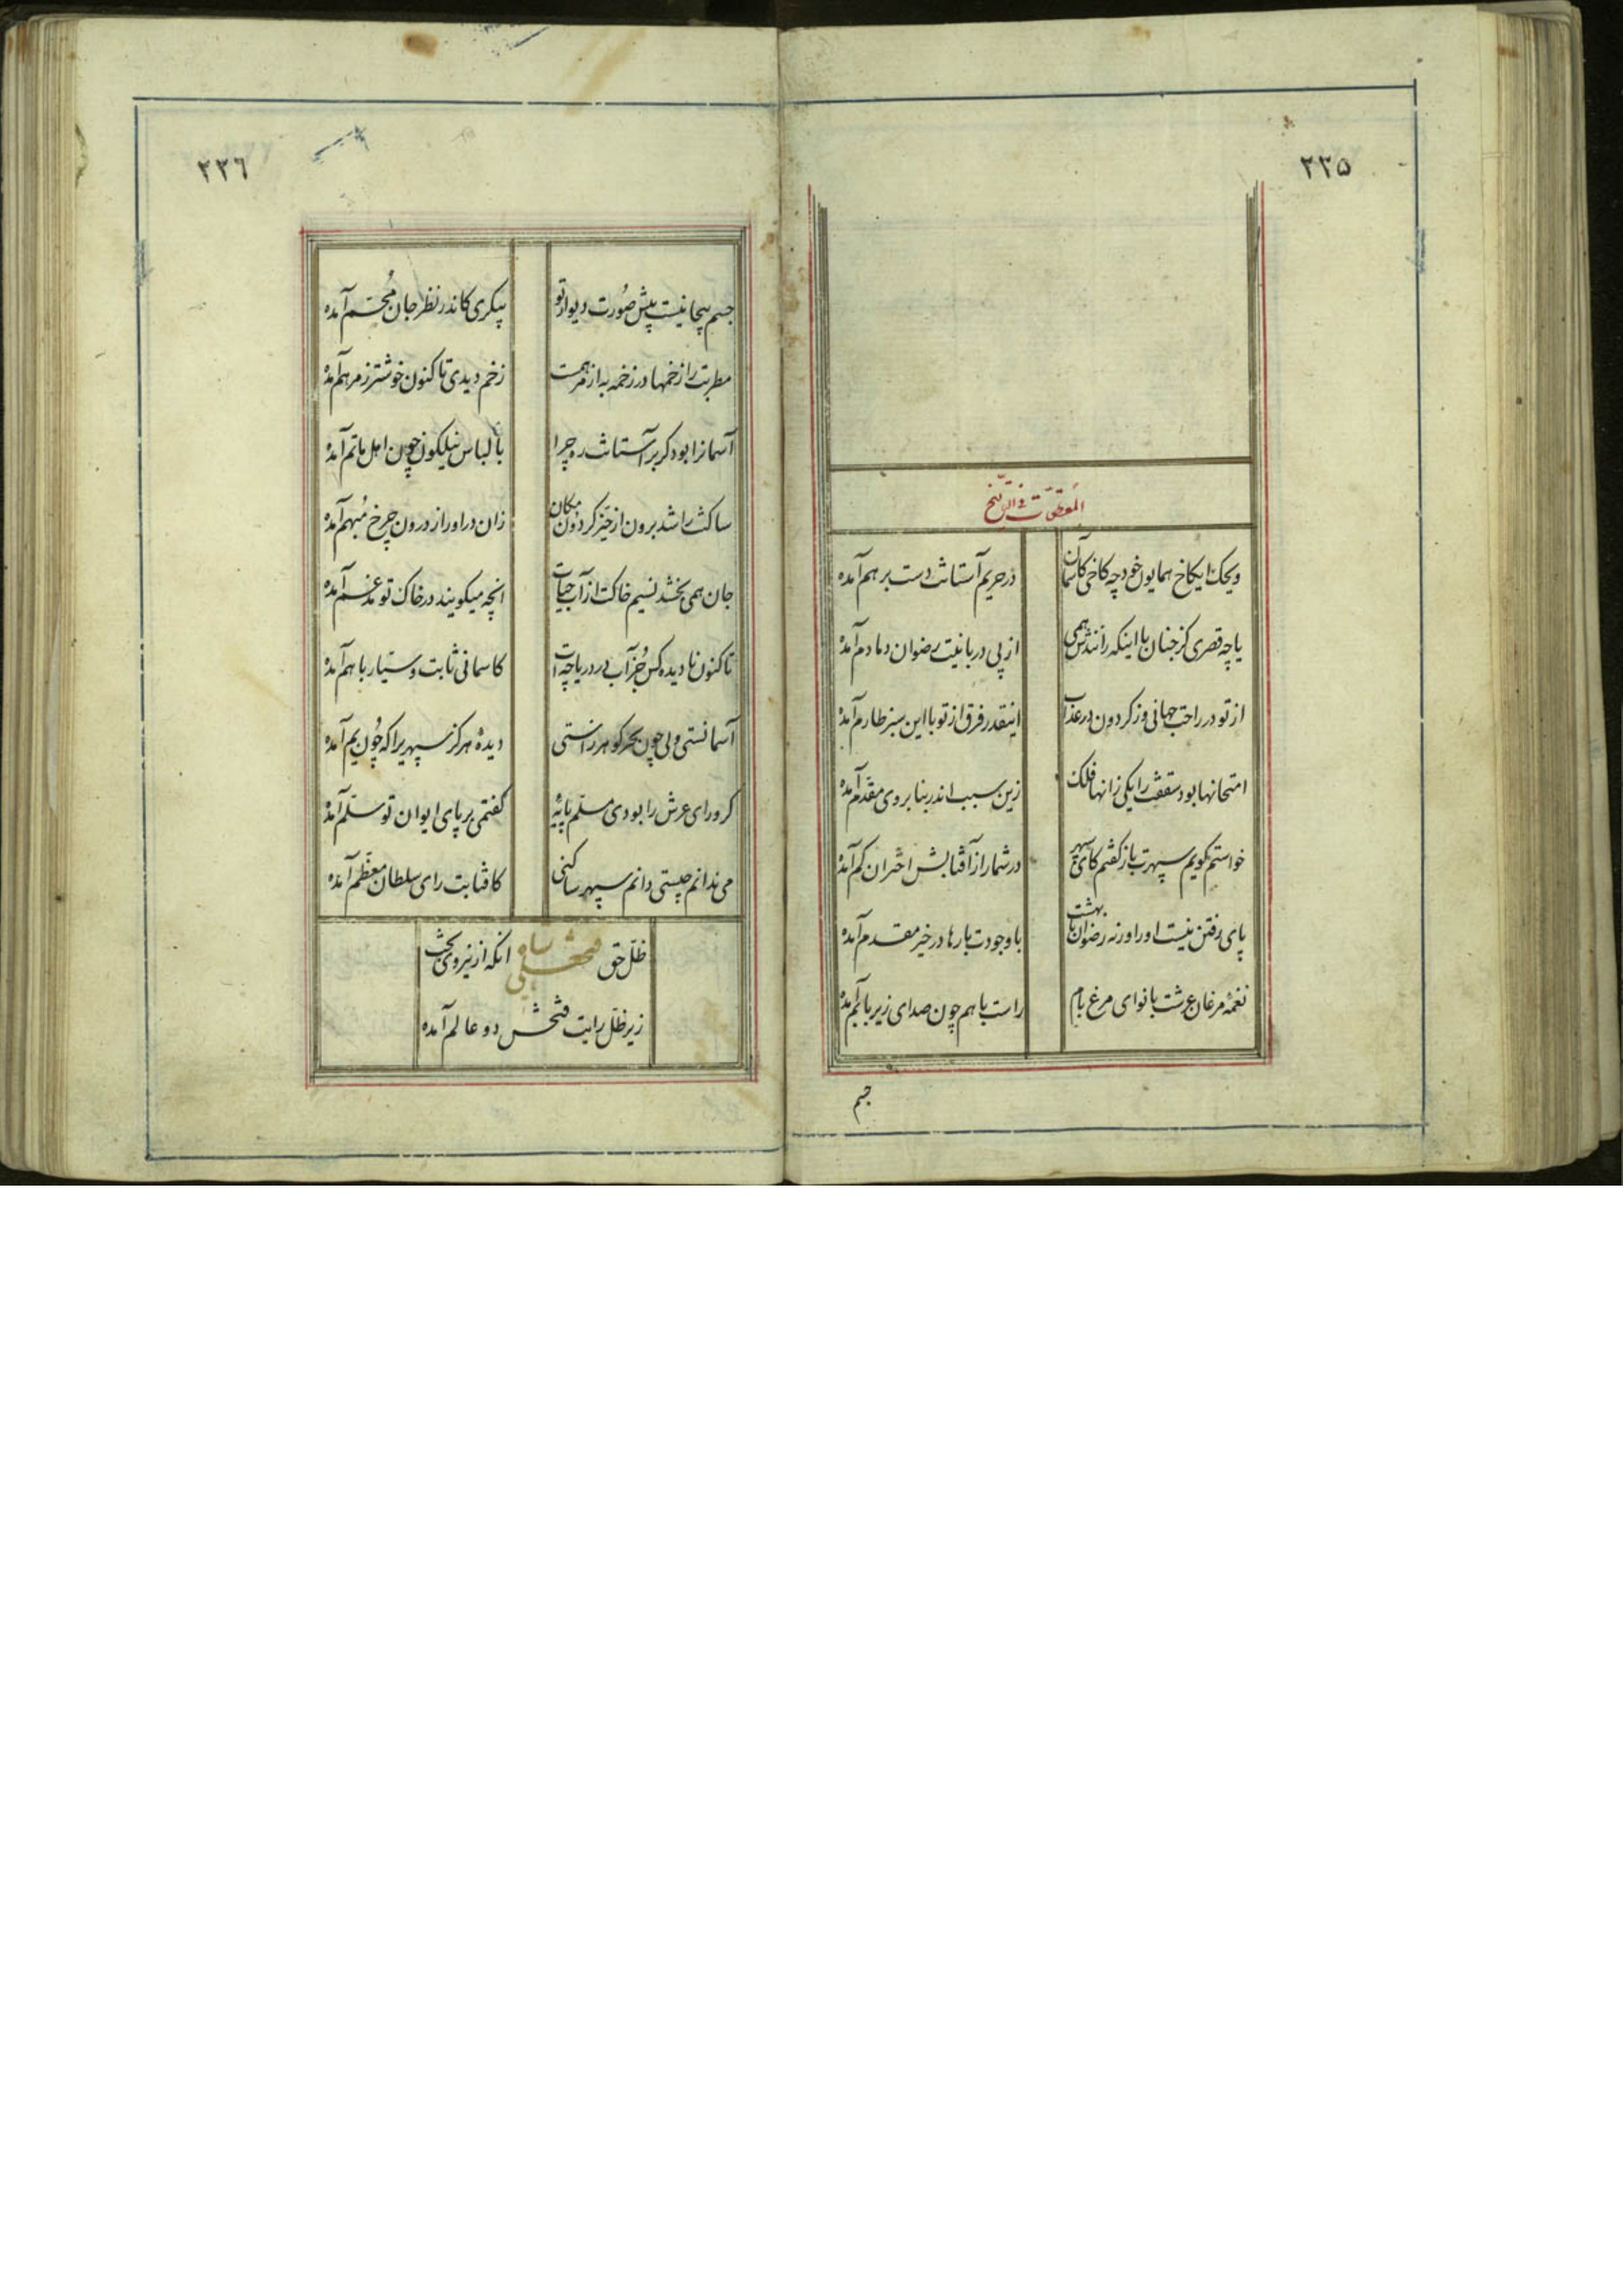 ۲۳۵
المقطعات فی التاریخ
ویحک ایکاخ همایون خود چه کاخی کاسمان
در حریم آستانت دست بر هم آمده
یا چه قصری کز جنان با اینکه رانندش همی
از پی دربانیت رضوان دمادم آمده
از تو در راحت جهانی وز کردون در عذاب
اینقدر فرق از تو با این سبز طارم آمده
امتحانها بود سقفت را یکی زانها فلک
زین سبب اندر بنا بروی مقدم آمده
خواستم کویم سپهرت باز کفتم کای سپهر
در شمار از آفتابش اختران کم آمده
پای رفتن نیست او را ورنه رضوان بهشت
با وجودت بارها در خیر مقدم آمده
نغمه مرغان عرشت با نوای مرغ بام
راست با هم چون صدای زیر با بم آمده
جسم
۲۳۶
جسم بیجا نیست پیش صورت دیوار تو
پیکری کاندر نظر جان مجسم آمده
مطربت را زخمها در زخمه به از مرهمست
زخم دیدی تا کنون خوشتر ز مرهم آمده
آسمانرا بود کر بر آستانت ره چرا
با لباس نیلکون چون اهل ماتم آمده
ساکنت را شد برون از حیز کردون مکان
زان در اوراز درون چرخ مبهم آمده
جان همی بخشد نسیم خاکت از آب حیات
انچه میکویند در خاک تو مدغم آمده
تا کنون نادیده کس جز آب در دریاچه ات
کاسمانی ثابت و سیار با هم آمده
آسمانستی ولی چون بحر کوهرزاستی
دیده هرکز سپهریرا که چون یم آمده
کر ورای عرش را بودی مسلم پایه
کفتمی بر پای ایوان تو سلم آمده
می ندانم چیستی دانم سپهر ساکنی
کافتابت رای سلطان معظم آمده
ظل حق فتحعلی شاه انکه از نیروی بخت
زیر ظل رایت فتحش دو عالم آمده